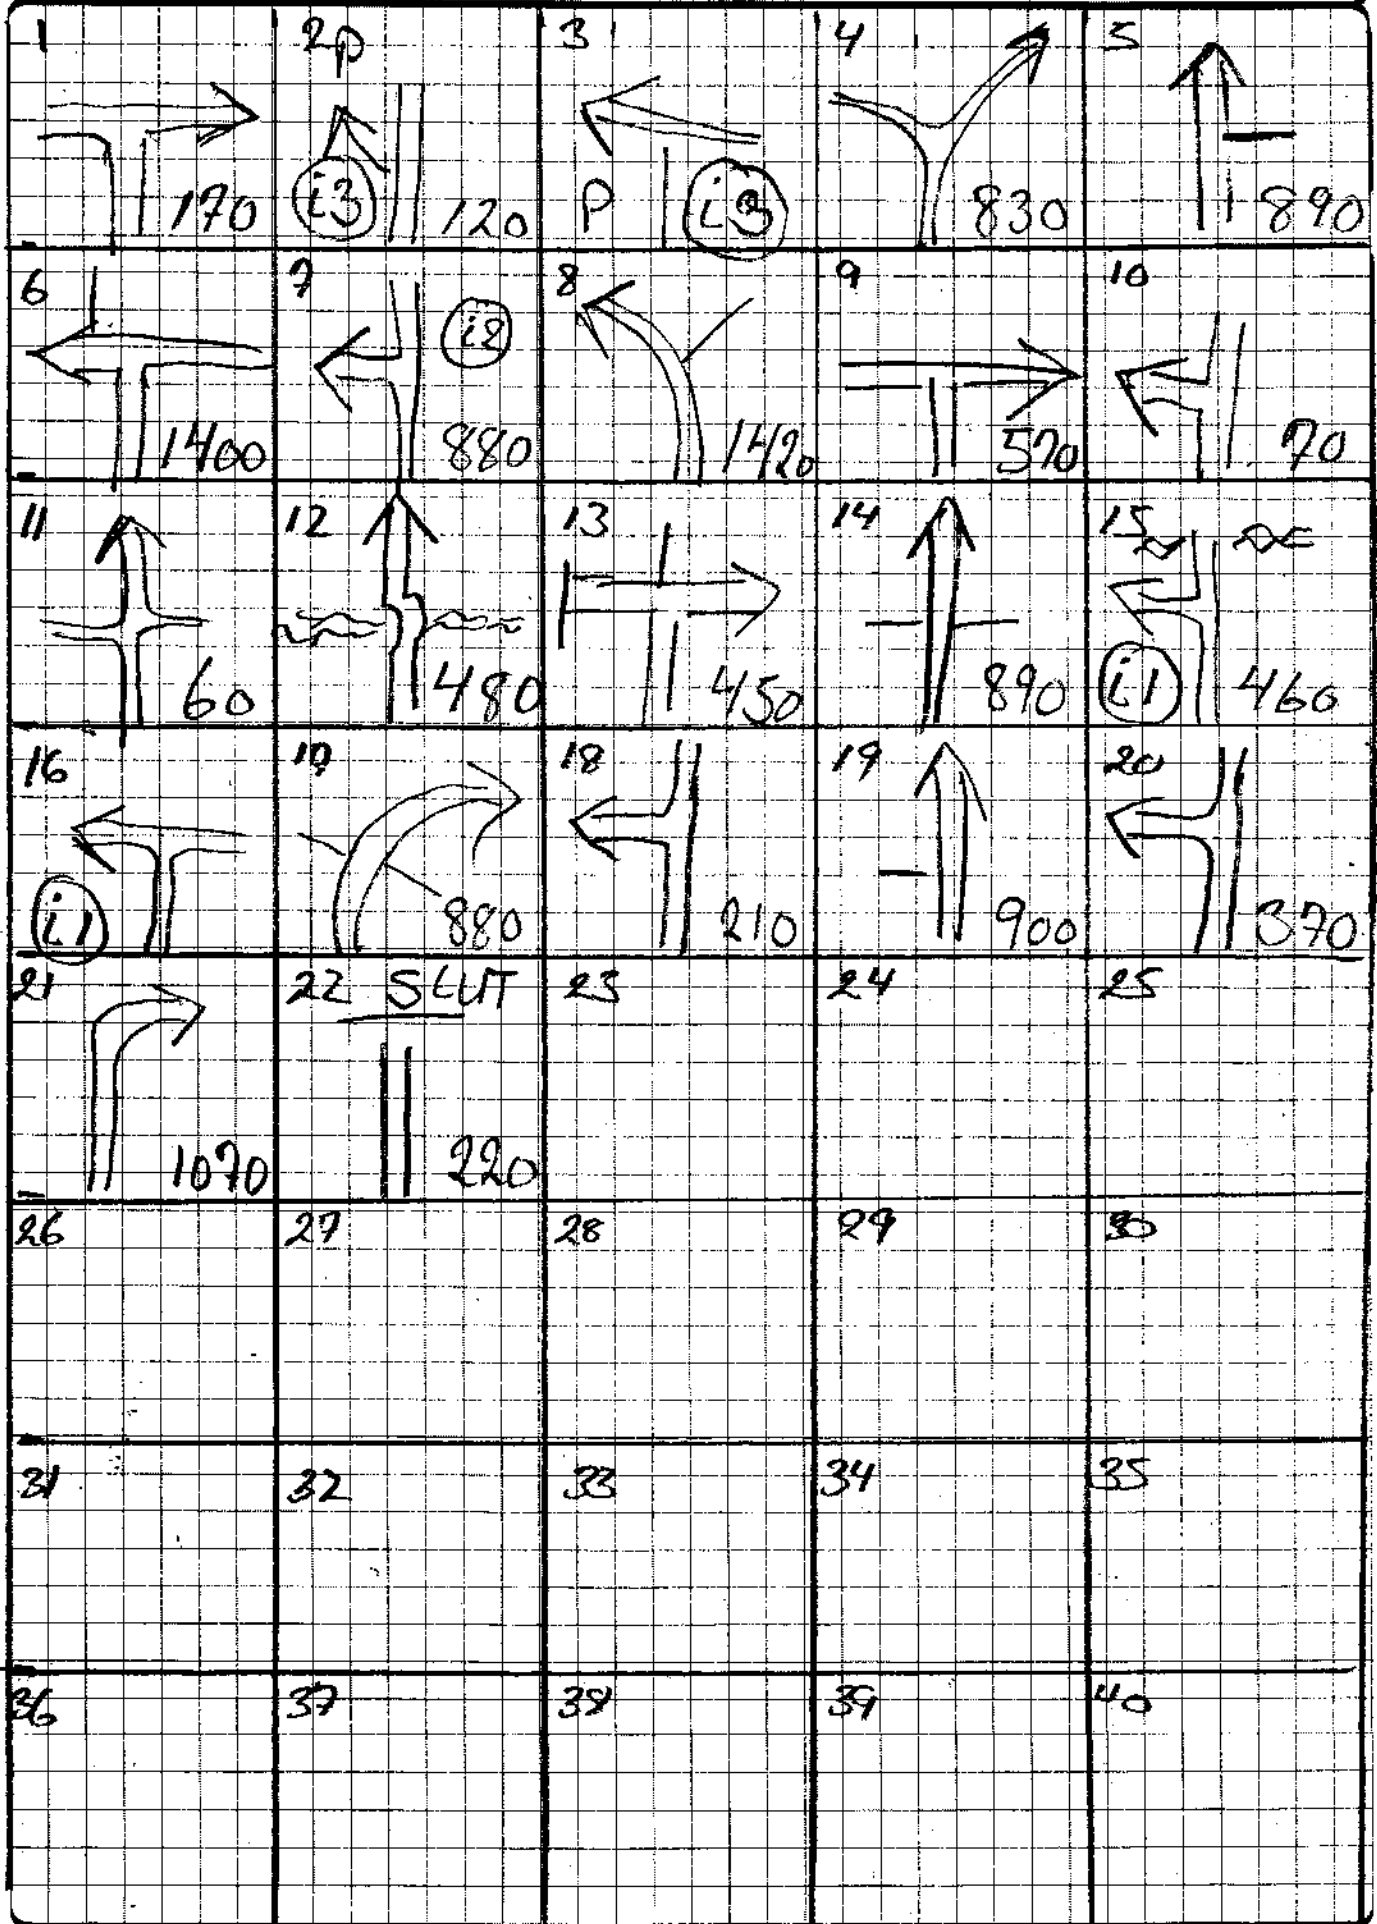 1
170
2p
i3
120
3
P
i3
4
830
5
890
6
1400
7
i2
880
8
1420
9
570
10
70
11
60
12
480
13
450
14
890
15
i1
460
16
i1
17
880
18
210
19
900
20
370
21
1070
22 SLUT
220
23
24
25
26
27
28
29
30
31
32
33
34
35
36
37
38
39
40